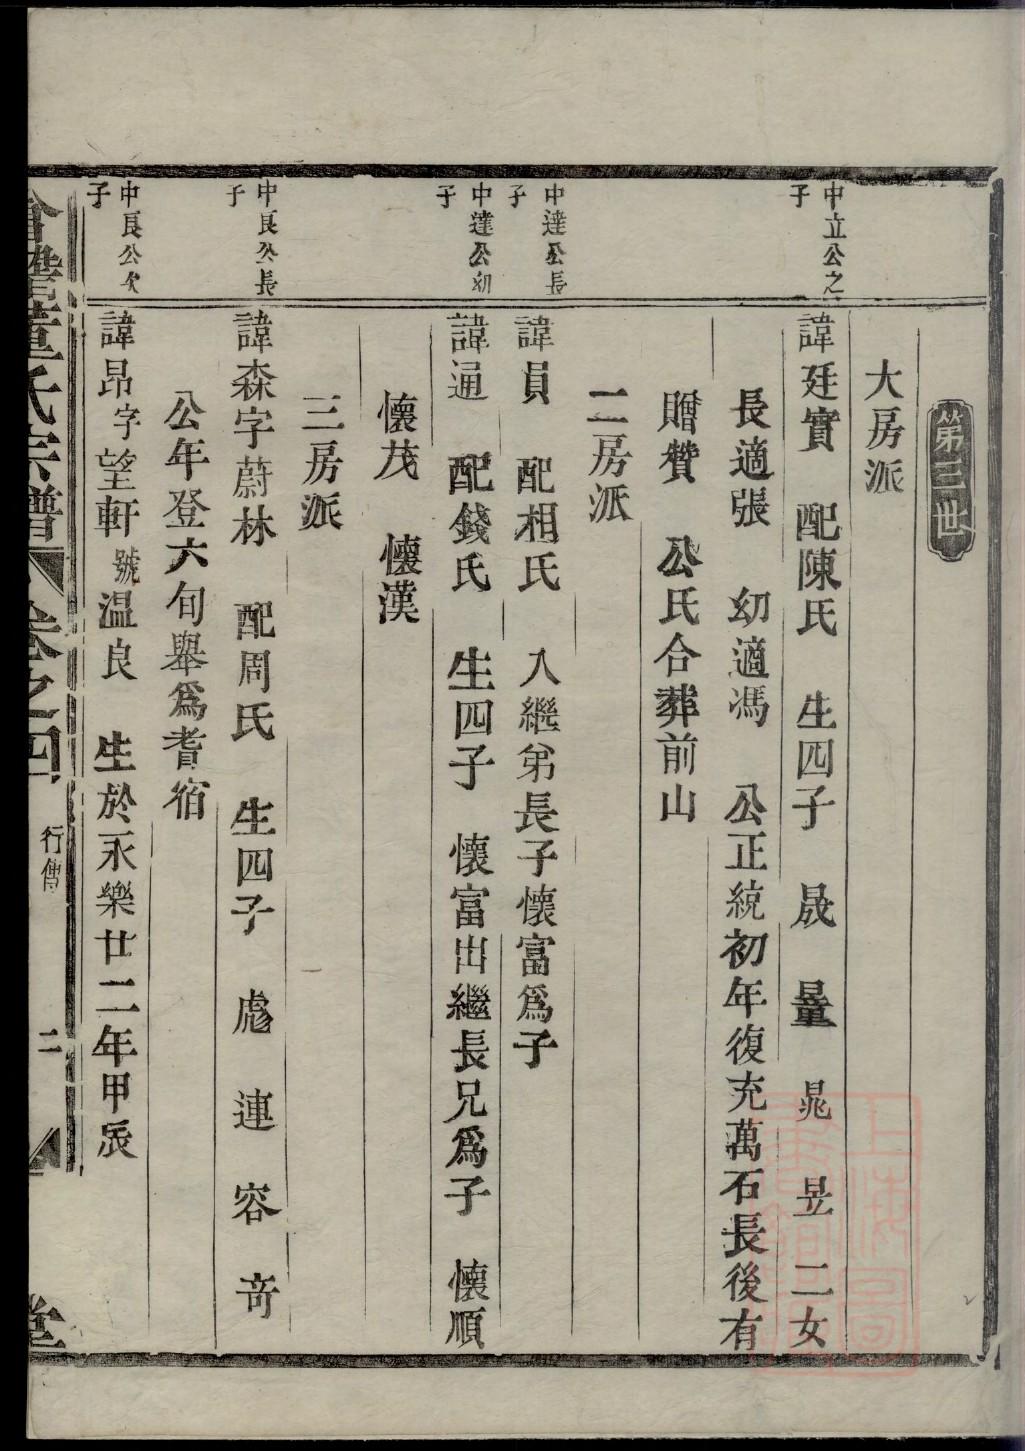 第三世
大房派
中立公之子
諱廷實 配陳氏 生四子 晟 量 晁 昱 二女
長適張 幼適馮 公正統初年復充萬石長後有
贈贊 公氏合葬前山
二房派
中達公長子
諱員 配相氏 入繼弟長子懷富為子
中達公幼子
諱通 配錢氏 生四子 懷富出繼長兄為子 懷順
懷茂 懷漢
三房派
中良公長子
諱森字蔚林 配周氏 生四子 彪 連 容 奇
公年登六旬舉為耆宿
中良公次子
諱昂字望軒號温良 生於永樂廿二年甲辰
董氏宗譜 卷之四 行傳 二 堂
上海圖書館藏